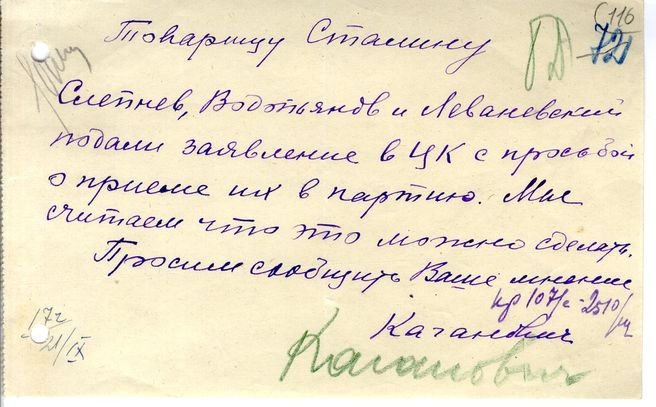 С 116
Товарищу Сталину
72
Слепнев, Водопьянов и Леваневский
подали заявление в ЦК с просьбой
о приеме их в партию. Мы
считаем что это можно сделать.
Просим сообщить Ваше мнение
Каганович
17г
21/IX
Каганович